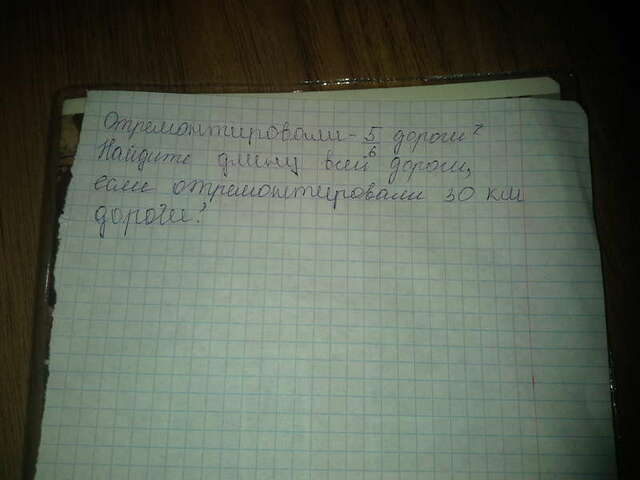 Отремонтировали - 5/6 дороги?
Найдите длину всей дороги,
если отремонтировали 30 км
дороги?